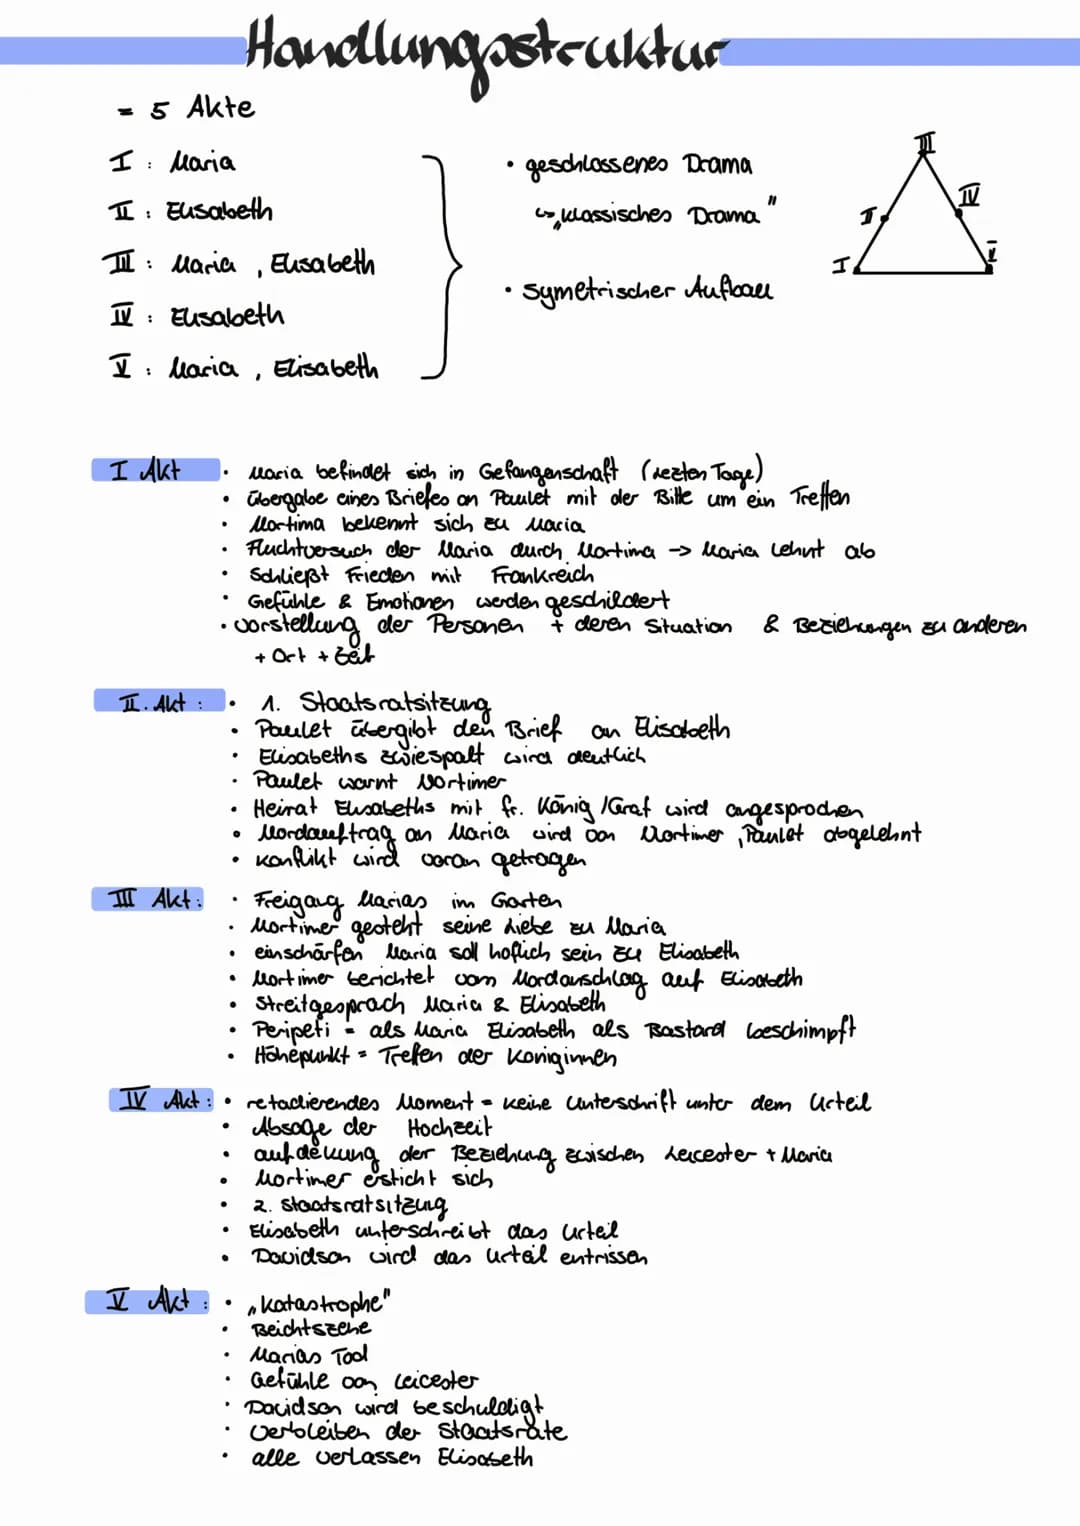 Handlungsstruktur
= 5 Akte
I : Maria
II : Elisabeth
III : Maria , Elisabeth
IV : Elisabeth
V : Maria , Elisabeth
• geschlossenes Drama
↳ „klassisches Drama"
• symetrischer Aufbau
III
II
IV
I
V
I Akt
• Maria befindet sich in Gefangenschaft (lezten Tage)
• Übergabe eines Briefes an Paulet mit der Bitte um ein Treffen
• Mortima bekennt sich zu Maria
• Fluchtversuch der Maria durch Mortima -> Maria lehnt ab
• Schließt Frieden mit Frankreich
• Gefühle & Emotionen werden geschildert
• Vorstellung der Personen + deren Situation & Beziehungen zu anderen
+ Ort + Zeit
II. Akt :
• 1. Staatsratsitzung
• Paulet übergibt den Brief an Elisabeth
• Elisabeths zwiespalt wird deutlich
• Paulet warnt Mortimer
• Heirat Elisabeths mit fr. König / Graf wird angesprochen
• Mordauftrag an Maria wird von Mortimer , Paulet abgelehnt
• Konflikt wird voran getragen
III Akt :
• Freigang Marias im Garten
• Mortimer gesteht seine Liebe zu Maria
• einschärfen Maria soll hoflich sein zu Elisabeth
• Mortimer berichtet vom Mordanschlag auf Elisabeth
• Streitgesprach Maria & Elisabeth
• Peripeti = als Maria Elisabeth als Bastard beschimpft
• Höhepunkt = Trefen der Koniginnen
IV Akt :
• retadierendes Moment = keine Unterschrift unter dem Urteil
• Absage der Hochzeit
• aufdekung der Beziehung zwischen Leicester + Maria
• Mortimer ersticht sich
• 2. Staatsratsitzung
• Elisabeth unterschreibt das Urteil
• Davidson wird das Urteil entrissen
V Akt :
• „Katastrophe"
• Beichtszene
• Marias Tod
• Gefühle von Leicester
• Davidson wird beschuldigt
• Verbleiben der Staatsräte
• alle verlassen Elisabeth